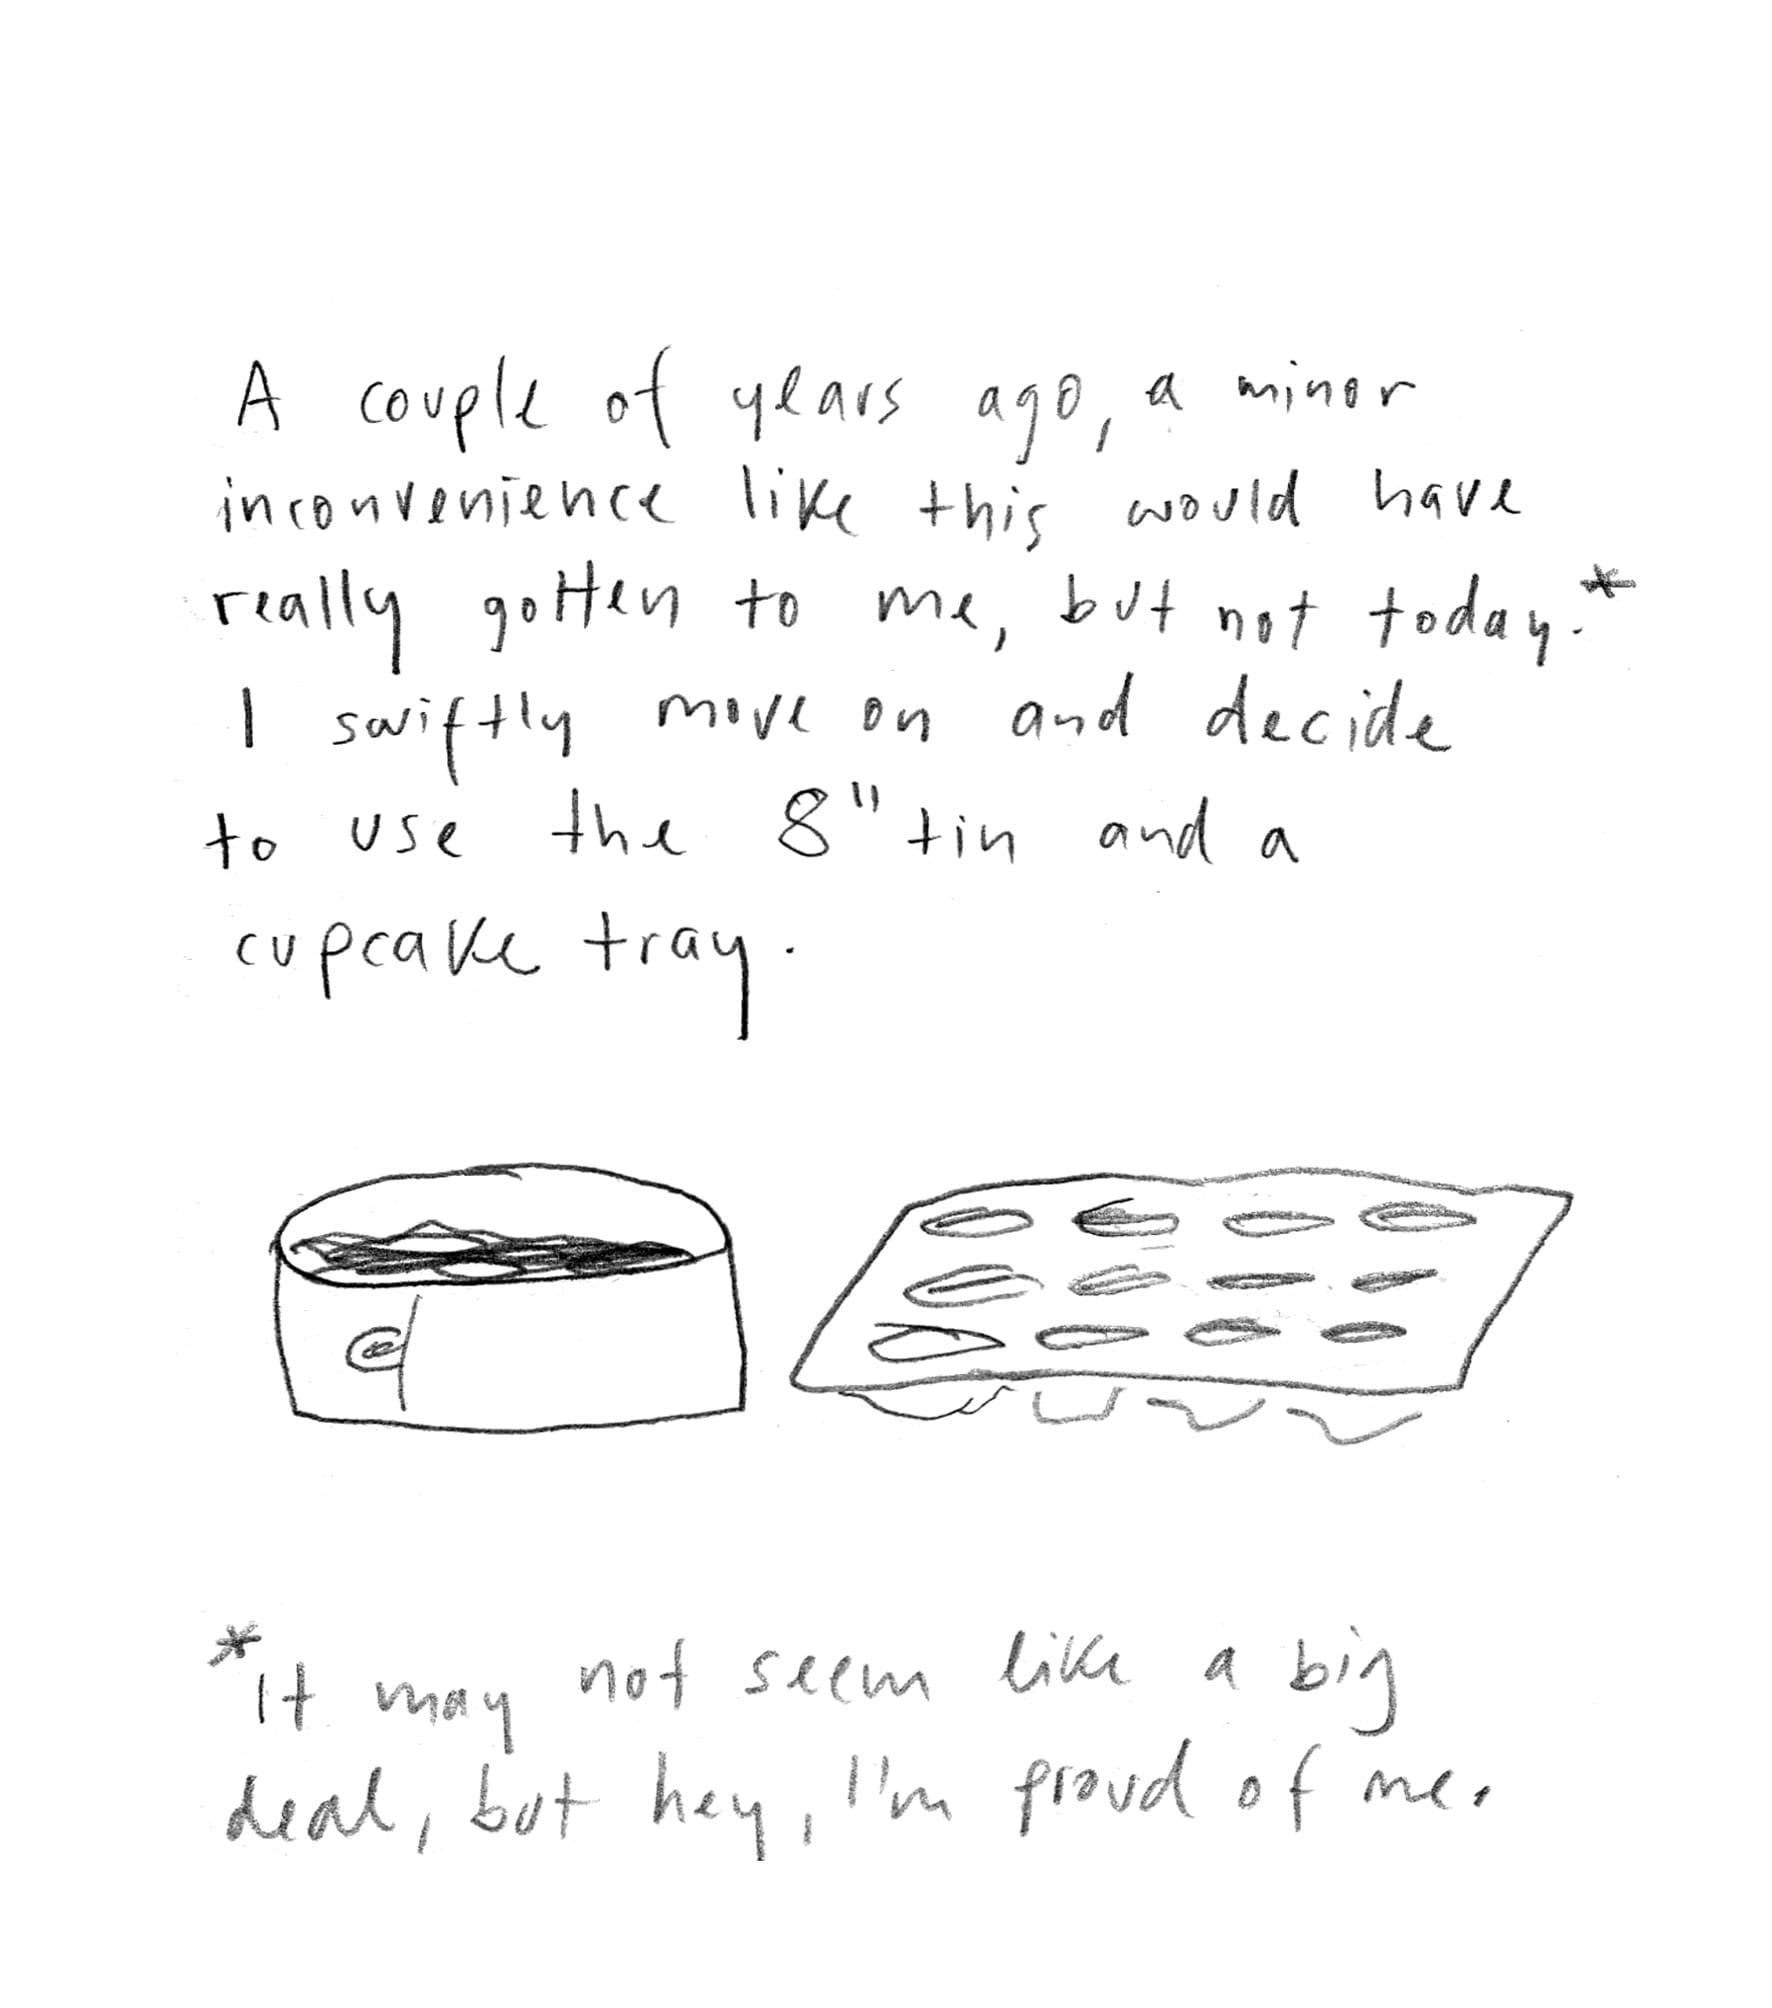 A couple of years ago, a minor
inconvenience like this would have
really gotten to me, but not today.*
I swiftly move on and decide
to use the 8" tin and a
cupcake tray.
*It may not seem like a big
deal, but hey, I'm proud of me.